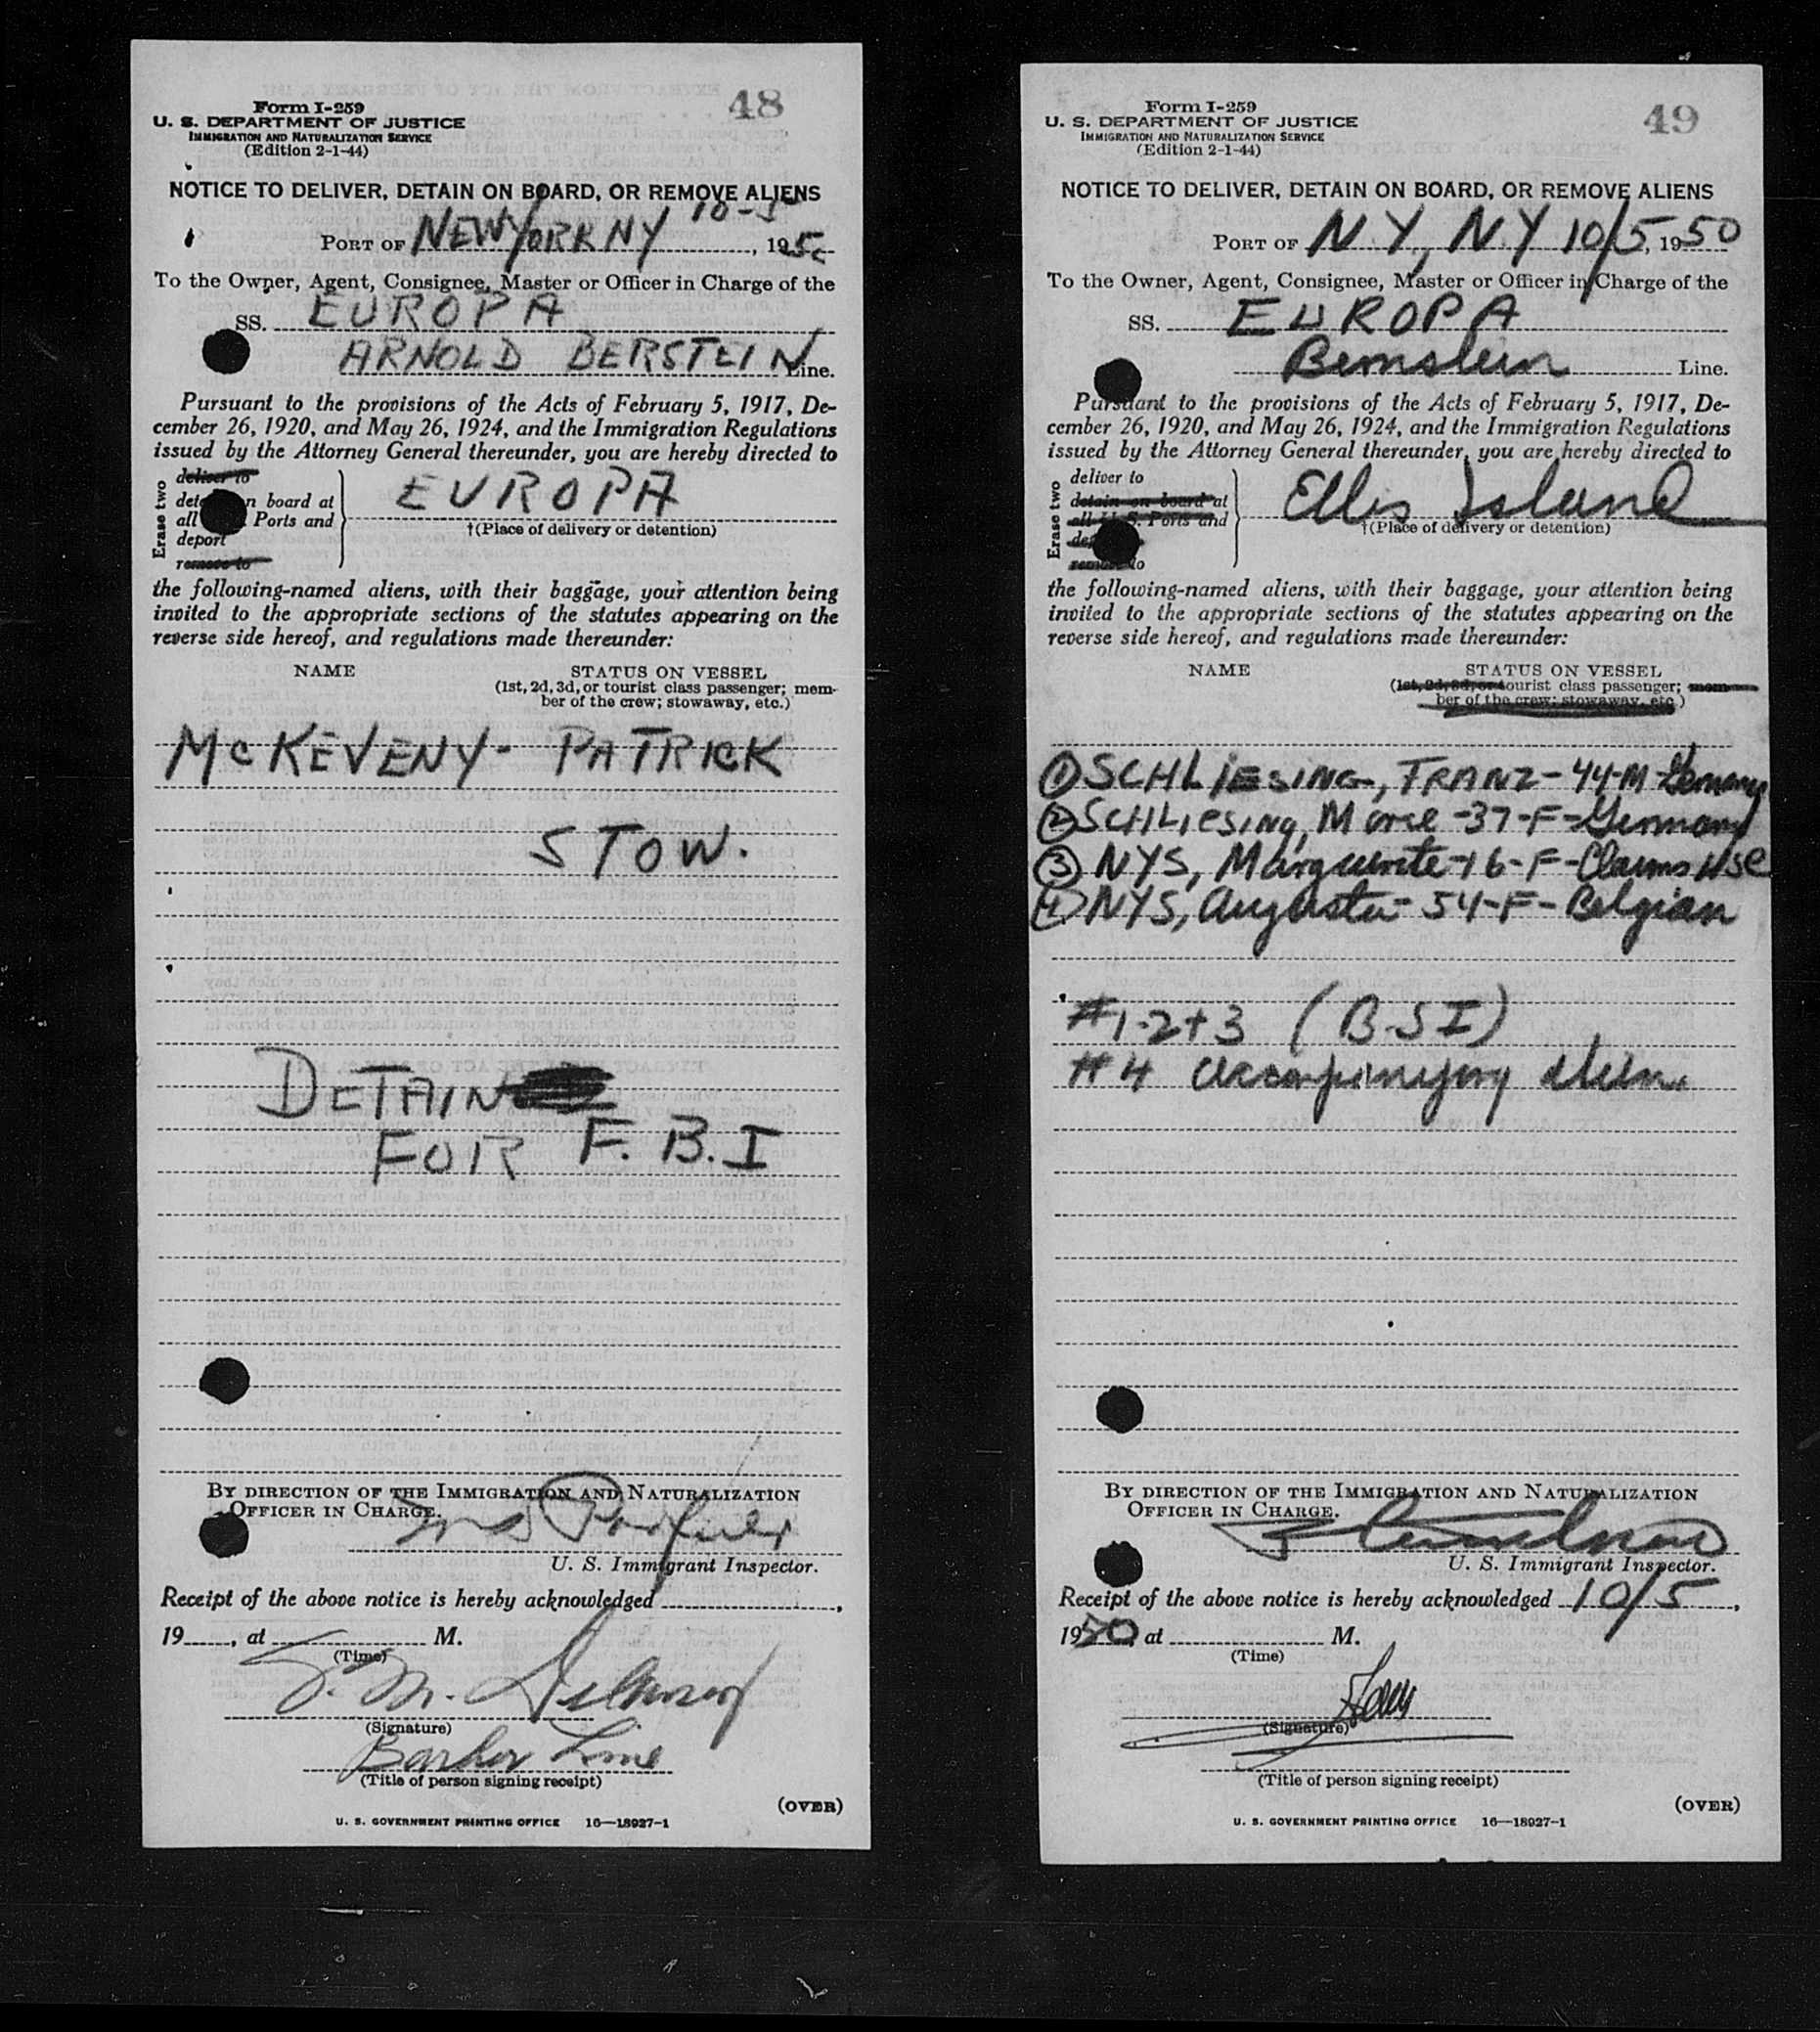 48
Form I-259
U. S. DEPARTMENT OF JUSTICE
IMMIGRATION AND NATURALIZATION SERVICE
(Edition 2-1-44)
NOTICE TO DELIVER, DETAIN ON BOARD, OR REMOVE ALIENS
10-5
PORT OF NEW YORK NY, 195
To the Owner, Agent, Consignee, Master or Officer in Charge of the
SS. EUROPA
ARNOLD BERSTEIN Line.
Pursuant to the provisions of the Acts of February 5, 1917, De-
cember 26, 1920, and May 26, 1924, and the Immigration Regulations
issued by the Attorney General thereunder, you are hereby directed to
Erase two
deliver to
n board at
all Ports and
deport
remove to
EUROPA
†(Place of delivery or detention)
the following-named aliens, with their baggage, your attention being
invited to the appropriate sections of the statutes appearing on the
reverse side hereof, and regulations made thereunder:
NAME STATUS ON VESSEL
(1st, 2d, 3d, or tourist class passenger; mem-
ber of the crew; stowaway, etc.)
McKEVENY - PATRICK
STOW.
DETAIN
FOR F. B. I
BY DIRECTION OF THE IMMIGRATION AND NATURALIZATION
OFFICER IN CHARGE.
U. S. Immigrant Inspector.
Receipt of the above notice is hereby acknowledged ,
19 , at M.
(Time)
(Signature)
Barber Line
(Title of person signing receipt)
(OVER)
U. S. GOVERNMENT PRINTING OFFICE 16—18927-1
49
Form I-259
U. S. DEPARTMENT OF JUSTICE
IMMIGRATION AND NATURALIZATION SERVICE
(Edition 2-1-44)
NOTICE TO DELIVER, DETAIN ON BOARD, OR REMOVE ALIENS
PORT OF N.Y., N.Y 10/5, 1950
To the Owner, Agent, Consignee, Master or Officer in Charge of the
SS. EUROPA
Bernstein Line.
Pursuant to the provisions of the Acts of February 5, 1917, De-
cember 26, 1920, and May 26, 1924, and the Immigration Regulations
issued by the Attorney General thereunder, you are hereby directed to
Erase two
deliver to
detain on board at
all U. S. Ports and
remove to
Ellis Island
†(Place of delivery or detention)
the following-named aliens, with their baggage, your attention being
invited to the appropriate sections of the statutes appearing on the
reverse side hereof, and regulations made thereunder:
NAME STATUS ON VESSEL
(1st, 2d, 3d, or tourist class passenger; mem-
ber of the crew; stowaway, etc.)
① SCHLIESING, FRANZ - 44-M - Germany
② SCHLIESING, - 37-F - Germany
③ NYS, Marguerite - 16 - F - Claims USC
④ NYS, Augusta - 54-F - Belgian
#1-2+3 (B.S I)
#4 accompanying alien
BY DIRECTION OF THE IMMIGRATION AND NATURALIZATION
OFFICER IN CHARGE.
U. S. Immigrant Inspector.
Receipt of the above notice is hereby acknowledged 10/5,
1950, at M.
(Time)
(Signature)
(Title of person signing receipt)
(OVER)
U. S. GOVERNMENT PRINTING OFFICE 16—18927-1